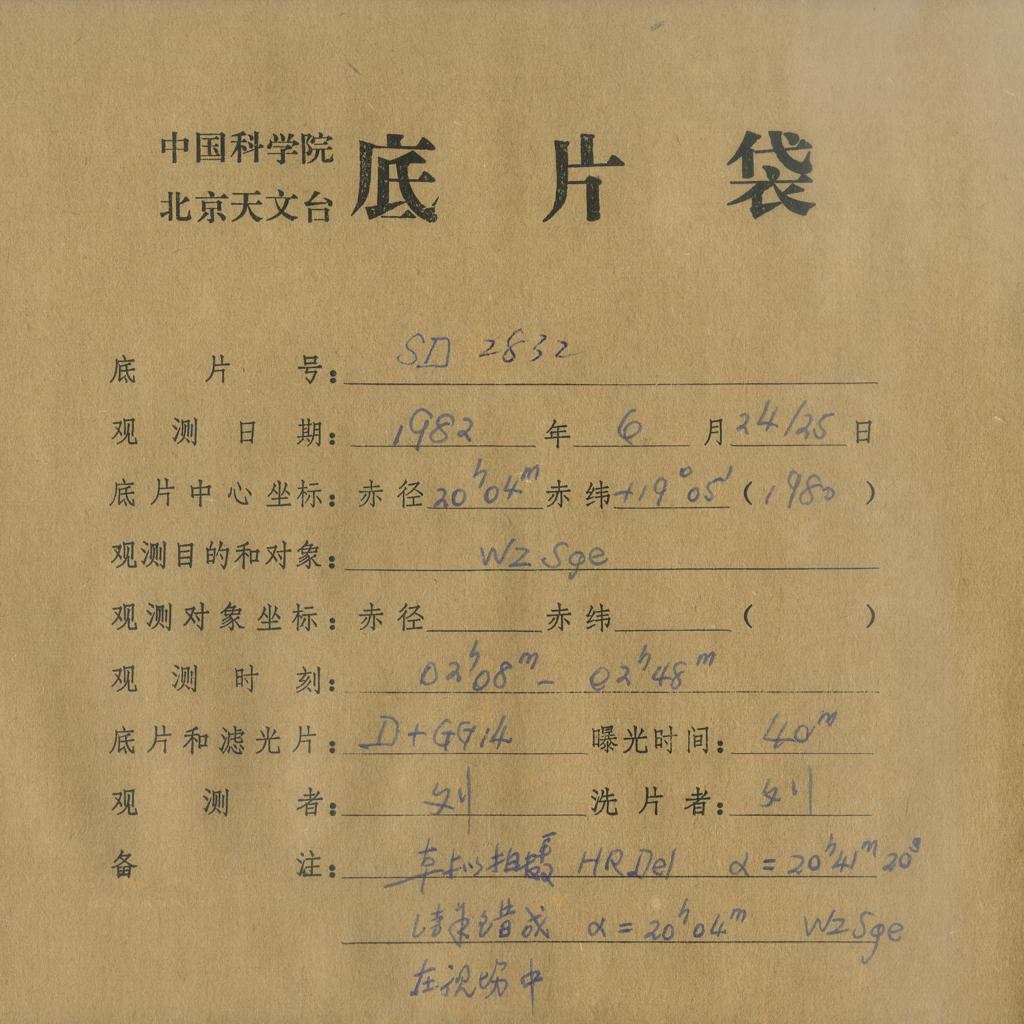 中国科学院
北京天文台
底片袋
底片号: SD 2832
观测日期: 1982 年 6 月 24/25 日
底片中心坐标: 赤径 20ʰ04ᵐ 赤纬 +19°05′ (1980)
观测目的和对象: WZ Sge
观测对象坐标: 赤径 赤纬 ( )
观测时刻: 02ʰ08ᵐ - 02ʰ48ᵐ
底片和滤光片: D+GG14 曝光时间: 40ᵐ
观测者: 刘 洗片者: 刘
备注: 本拟拍摄 HR Del α = 20ʰ41ᵐ20ˢ
结果错成 α = 20ʰ04ᵐ WZ Sge
在视场中